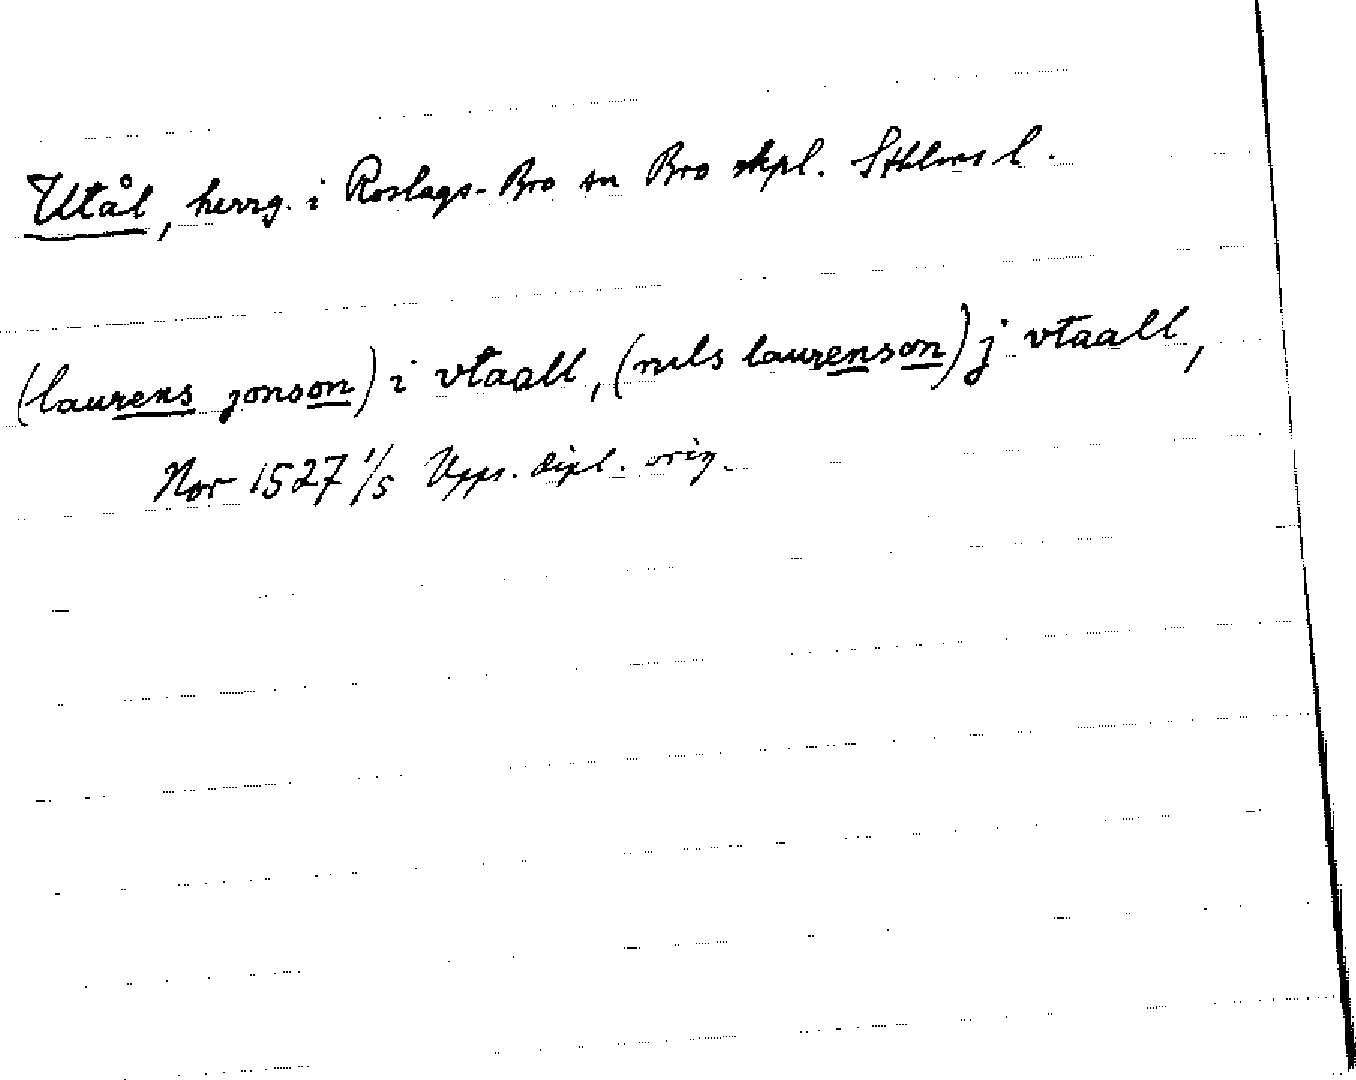 Utål, herrg. i Roslags-Bro sn Bro skpl. Sthlms l.
(laurens jonson) i vtaall, (nils laurenson) j vtaall,
Nor 1527 1/5 Upps. dipl. orig.